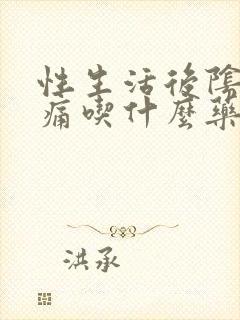 性生活後陰
痛喫什麼藥
洪承